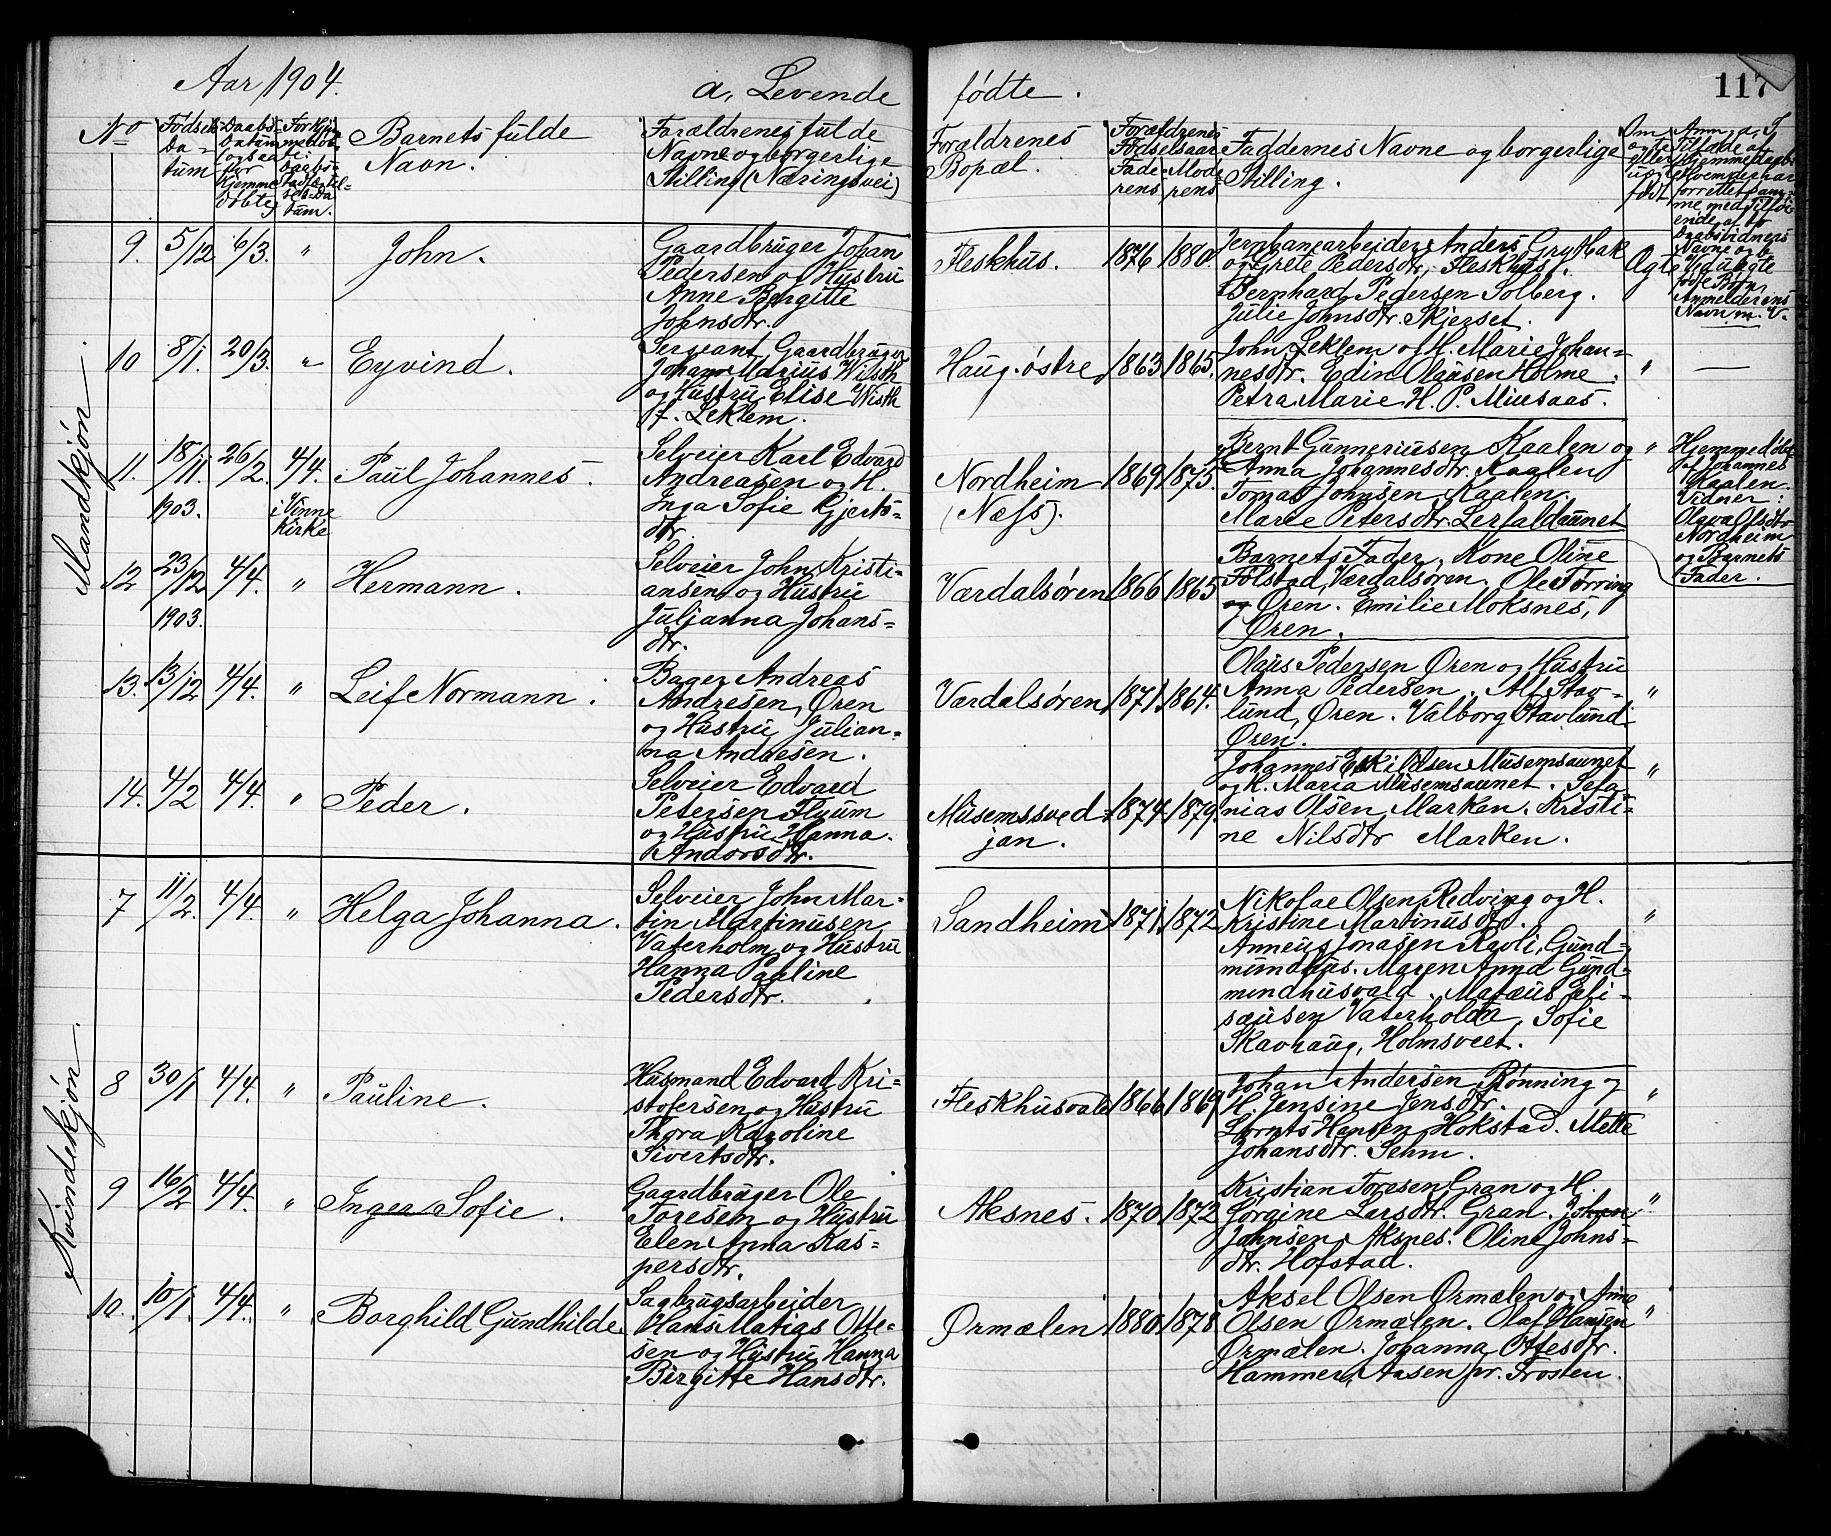 Aar 1904. a, Levende fødte. 117
No
Fødsels Datum
Daabs- Datum ogsaa for Hjemme døbte
Barnets fulde
Navn.
Forældrenes fulde
Navne og borgerlige
Stilling (Næringsvei)
Forældrenes
Bopæl.
Forældrenes
Fødselsaar
Faderens
Moderens
Faddernes Navne og borgerlige
Stilling.
Om ægte eller uægte født
Mandkjøn.
9. 5/12 6/3. " John.
Gaardbruger Johan
Pedersen og Hustru
Anne Bergitte
Johnsdtr.
Fleskhus. 1876 1880.
Jernbanearbeider Anders Grythbak
og Grete Pedersdtr, Fleskhus.
Bernhard Pedersen Solberg.
Julie Johnsdtr. Skjerset.
Ægte
10 8/1. 20/3. " Eyvind.
Sergeant, Gaardbruger
Johan Marius Wisth
og Hustru Elise Wisth
f. Leklem.
Haug østre 1863. 1865.
John Leklem og H. Marie Johan=
nesdtr. Edin Olausen Holme.
Petra Marie H. P. Miusaas.
" —
11. 18/11. 1903. 26/2. 4/4. i Vinne Kirke Paul Johannes.
Selveier Karl Edvard
Andreasen og H.
Inga Sofie Gjerts=
dtr.
Nordheim
(Næss).
1869 1873.
Bernt Gunneriusen Kaalen og
Anna Johannesdtr. Kaalen
Tomas Johnsen Kaalen.
Marie Petersdtr. Lerfaldaunet
"
Hjemmedøbt
af Johannes
Kaalen.
Vidner:
Olava Olsdtr
Nordheim
og Barnets
Fader.
12 23/12 1903. 4/4. " Hermann.
Selveier John Kristi=
ansen og Hustru
Juljanna Johans=
dtr.
Værdalsøren 1866 1865
Barnets Fader, Kone Oline
Folstad, Værdalsøren. Ole Tørring
og Øren. Emilie Moksnes,
Øren.
13. 13/12 4/4. " Leif Normann.
Bager Andreas
Andresen, Øren
og Hustru Julian=
na Andresen.
Værdalsøren 1871. 1864.
Olaus Pedersen Øren og Hustru
Anna Pedersen. Alf Stav=
lund, Øren. Valborg Stavlund
Øren.
"
14. 4/2 4/4. " Peder.
Selveier Edvard
Petersen Flyum
og Hustru Hanna
Andorsdtr.
Musemssved=
jan.
1874. 1879.
Johannes Eskilsen Musemsaunet
og H. Maria Musemsaunet. Sefa=
nias Olsen Marken. Kristi=
ne Nilsdtr Marken.
"
Kvindekjøn.
7 11/2. 4/4. " Helga Johanna.
Selveier John Mar=
tin Martinusen
Vaterholm og Hustru
Hanna Pauline
Pedersdtr.
Sandheim 1871. 1872
Nikolae Olsen Redving og H.
Kristine Martinusdtr.
Anneus Jonasen Ravli, Gund=
mundhus. Maren Anna Gund=
mundhusvald. Matæus Eli=
sæusen Vaterholm, Sofie
Skavhaug, Holmsveet.
"
8 30/1 4/4. " Pauline.
Husmand Edvard Kri=
stofersen og Hustru
Thora Karoline
Sivertsdtr.
Fleskhusvald 1866 1869
Johan Andersen Rønning og
H. Jensine Jensdtr.
Lornts Hansen Hokstad. Mette
Johansdtr. Sehm.
"
9 16/2 4/4. " Inger Sofie.
Gaardbruger Ole
Toresen og Hustru
Elen Anna Kas=
persdtr.
Aksnes. 1870 1872
Kristian Toresen Gran og H.
Jørgine Larsdtr. Gran. Johan
Johnsen Aksnes. Oline Johns=
dtr. Hofstad.
"
10. 10/1 4/4. " Borghild Gundhilde
Sagbrugsarbeider
Hans Matias Otte=
sen og Hustru Hanna
Birgitte Hansdtr.
Ørmælen 1880 1878
Aksel Olsen Ørmælen og Anne
Olsen Ørmælen. Olaf Hansen
Ørmælen. Johanna Ottesdtr.
Hammer, Aasen pr. Frosten.
"